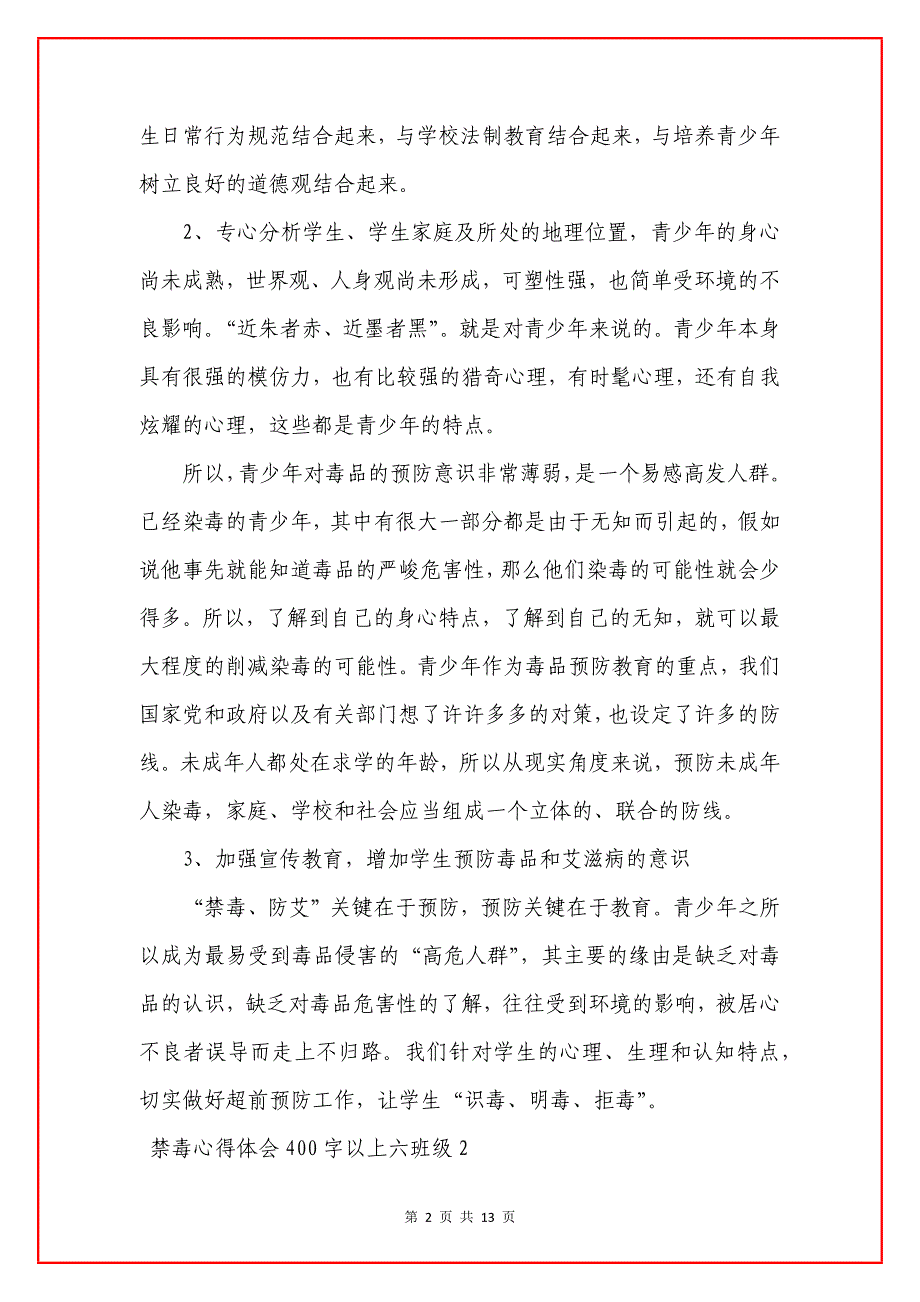 生日常行为规范结合起来，与学校法制教育结合起来，与培养青少年
树立良好的道德观结合起来。
2、专心分析学生、学生家庭及所处的地理位置，青少年的身心
尚未成熟，世界观、人身观尚未形成，可塑性强，也简单受环境的不
良影响。“近朱者赤、近墨者黑”。就是对青少年来说的。青少年本身
具有很强的模仿力，也有比较强的猎奇心理，有时髦心理，还有自我
炫耀的心理，这些都是青少年的特点。
所以，青少年对毒品的预防意识非常薄弱，是一个易感高发人群。
已经染毒的青少年，其中有很大一部分都是由于无知而引起的，假如
说他事先就能知道毒品的严峻危害性，那么他们染毒的可能性就会少
得多。所以，了解到自己的身心特点，了解到自己的无知，就可以最
大程度的削减染毒的可能性。青少年作为毒品预防教育的重点，我们
国家党和政府以及有关部门想了许许多多的对策，也设定了许多的防
线。未成年人都处在求学的年龄，所以从现实角度来说，预防未成年
人染毒，家庭、学校和社会应当组成一个立体的、联合的防线。
3、加强宣传教育，增加学生预防毒品和艾滋病的意识
“禁毒、防艾”关键在于预防，预防关键在于教育。青少年之所
以成为最易受到毒品侵害的“高危人群”，其主要的缘由是缺乏对毒
品的认识，缺乏对毒品危害性的了解，往往受到环境的影响，被居心
不良者误导而走上不归路。我们针对学生的心理、生理和认知特点，
切实做好超前预防工作，让学生“识毒、明毒、拒毒”。
禁毒心得体会 400 字以上六班级 2
第 2 页 共 13 页